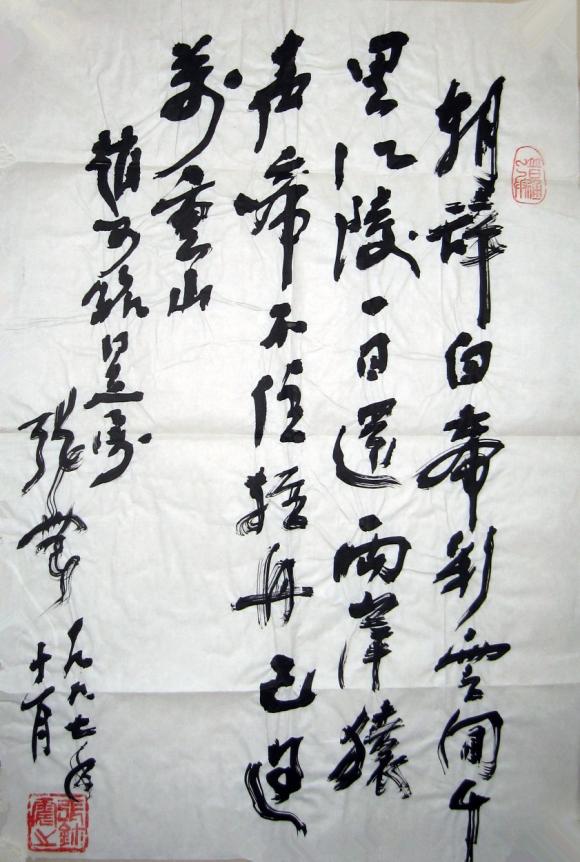 朝辞白帝彩云间千
里江陵一日还两岸猿
声啼不住轻舟已过
万重山
一九九七年
十一月